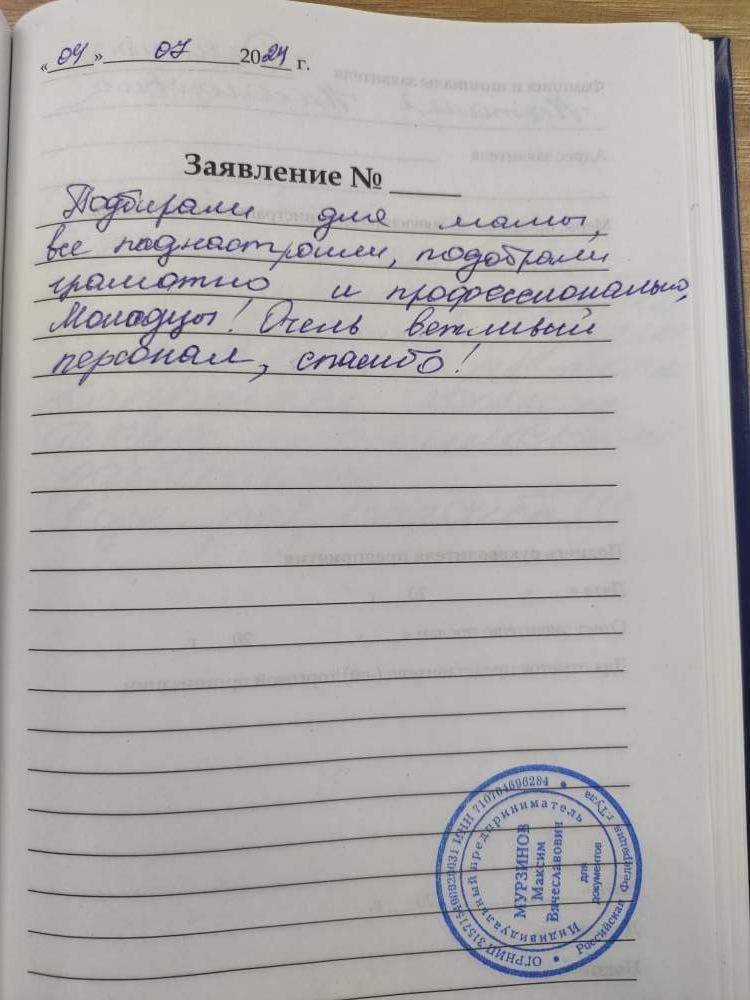 «04» 07 2024 г.
Заявление №
Подбирали для мамы,
все поднастроили, подобрали
грамотно и профессионально,
Молодцы! Очень вежливый
персонал, спасибо!
Индивидуальный предприниматель
МУРЗИНОВ
Максим
Вячеславович
для
документов
Российская Федерация г.Тула
ИНН 710764696284
ОГРНИП